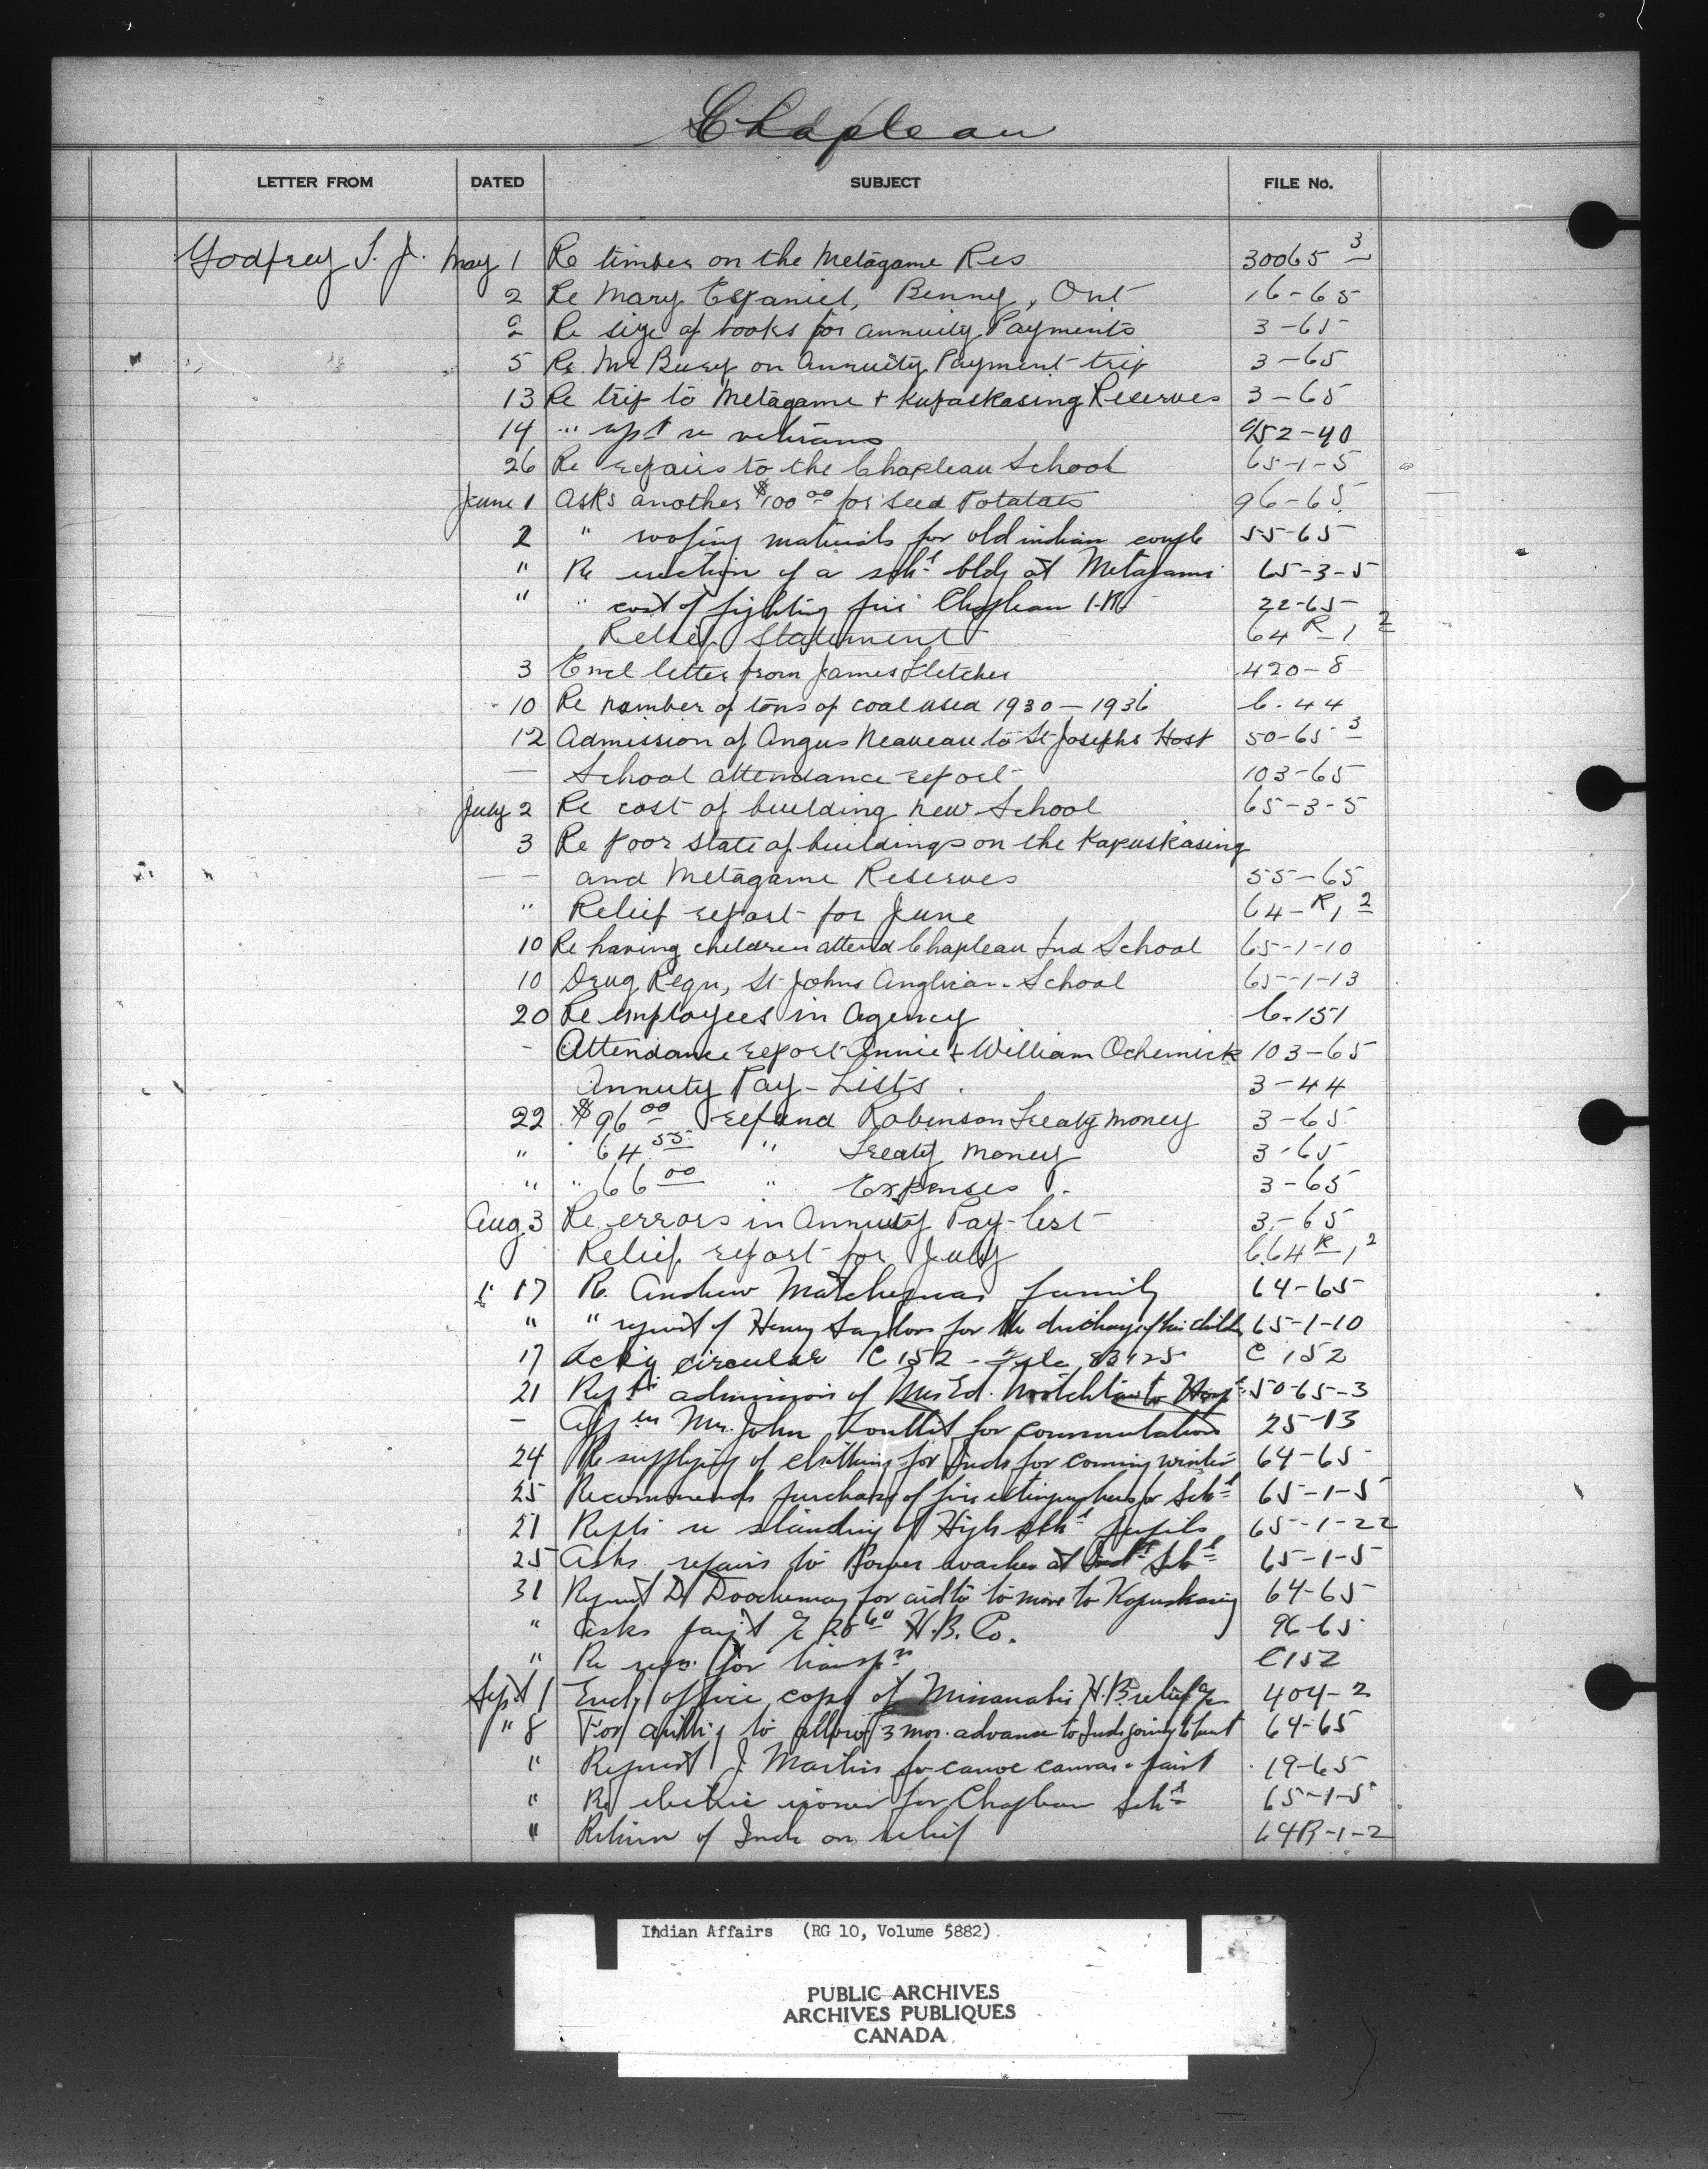 Chapleau
LETTER FROM DATED SUBJECT FILE No.
Godfrey T. J. May 1 Re timber on the Metagame Res 30065 3
2 Re Mary Espaniel, Benny, Ont 16-65
2 Re size of books for annuity Payments 3-65
5 Re Mr Bury on Annuity Payment trip 3-65
13 Re trip to Metagame + Kupaskasing Reserves 3-65
14 " rept re veterans 452-40
26 Re repairs to the Chapleau School 65-1-5
June 1 Asks another $100 00 for seed Potatoes 96-65
2 " roofing materials for old indian couple 55-65
" Re erection of a sch l bldg at Metagami 65-3-5
" " cost of fighting fire Chapleau I.R. 22-65
Relief Statement 64 R-1 2
3 Encl letter from James Fletcher 420-8
10 Re number of tons of coal used 1930-1936 6-44
12 Admission of Angus Neaveau to St Josephs Hosp 50-65 3
— School attendance report 103-65
July 2 Re cost of building new School 65-3-5
3 Re poor state of buildings on the Kapuskasing
— — and Metagame Reserves 55-65
" Relief report for June 64-R 1 2
10 Re having children attend Chapleau Ind School 65-1-10
10 Drug Requ, St Johns Anglican School 65-1-13
20 Re employees in Agency 6-151
- Attendance report Annie + William Ochemick 103-65
Annuty Pay-Lists 3-44
22 $96 00 refund Robinson Treaty money 3-65
" 64 55 " Treaty money 3-65
" " 66 00 " Expenses 3-65
Aug 3 Re errors in Annuity Pay-list 3-65
Relief report for July 664 R 1 2
" 17 Re Andrew Matchewas family 64-65
" " request of Henry Saylors for the discharge of his child 65-1-10
17 Ackg circular C 152 - File 83425 C 152
21 Rept admission of Mrs Ed. to Hosp 50-65-3
- App in Mr. John Louttit for commutation 25-13
24 Re supplying of clothing for Inds for coming winter 64-65
25 Recommends purchase of fire extinguishers for Sch l 65-1-5
27 Repts re standing of High sch l pupils 65-1-22
25 Asks repairs to Power washer at Ind Sch l 65-1-5
31 Request D for aid to to move to Kapuskasing 64-65
" Asks pay't a/c 28 60 H.B. Co. 96-65
" Re requ. for transp n C152
Sept 1 Encl office copy of Missanabie H.B. relief a/c 404-2
" 8 For to allow 3 mos. advance to Inds going to hunt 64-65
" Request J. Martin for canoe canvas + paint 19-65
" Re electric ironer for Chapleau Sch l 65-1-5
" Return of Inds on relief 64R-1-2
Indian Affairs (RG 10, Volume 5882)
PUBLIC ARCHIVES
ARCHIVES PUBLIQUES
CANADA